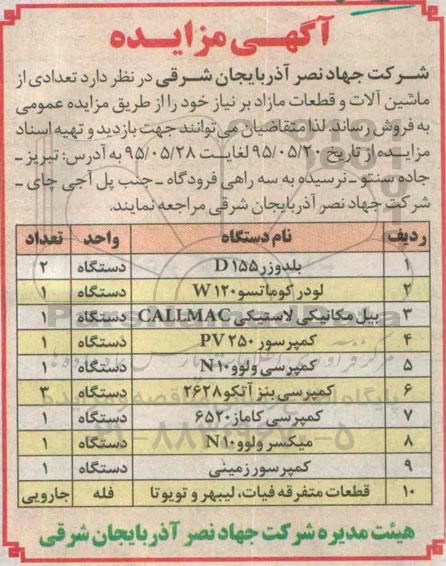 آگهی مزایده
شرکت جهاد نصر آذربایجان شرقی در نظر دارد تعدادی از
ماشین آلات و قطعات مازاد بر نیاز خود را از طریق مزایده عمومی
به فروش رساند. لذا متقاضیان می توانند جهت بازدید و تهیه اسناد
مزایده از تاریخ ۹۵/۰۵/۲۰ لغایت ۹۵/۰۵/۲۸ به آدرس: تبریز ـ
جاده سنتو ـ نرسیده به سه راهی فرودگاه ـ جنب پل آجی چای ـ
شرکت جهاد نصر آذربایجان شرقی مراجعه نمایند.
ردیف نام دستگاه واحد تعداد
۱ بلدوزر D۱۵۵ دستگاه ۲
۲ لودر کوماتسو W۱۲۰ دستگاه ۱
۳ بیل مکانیکی لاستیکی CALLMAC دستگاه ۱
۴ کمپرسور PV۲۵۰ دستگاه ۱
۵ کمپرسی ولوو N۱۰ دستگاه ۱
۶ کمپرسی بنز آتکو ۲۶۲۸ دستگاه ۳
۷ کمپرسی کاماز ۶۵۲۰ دستگاه ۱
۸ میکسر ولوو N۱۰ دستگاه ۱
۹ کمپرسور زمینی دستگاه ۱
۱۰ قطعات متفرقه فیات، لیبهر و تویوتا فله جارویی
هیئت مدیره شرکت جهاد نصر آذربایجان شرقی